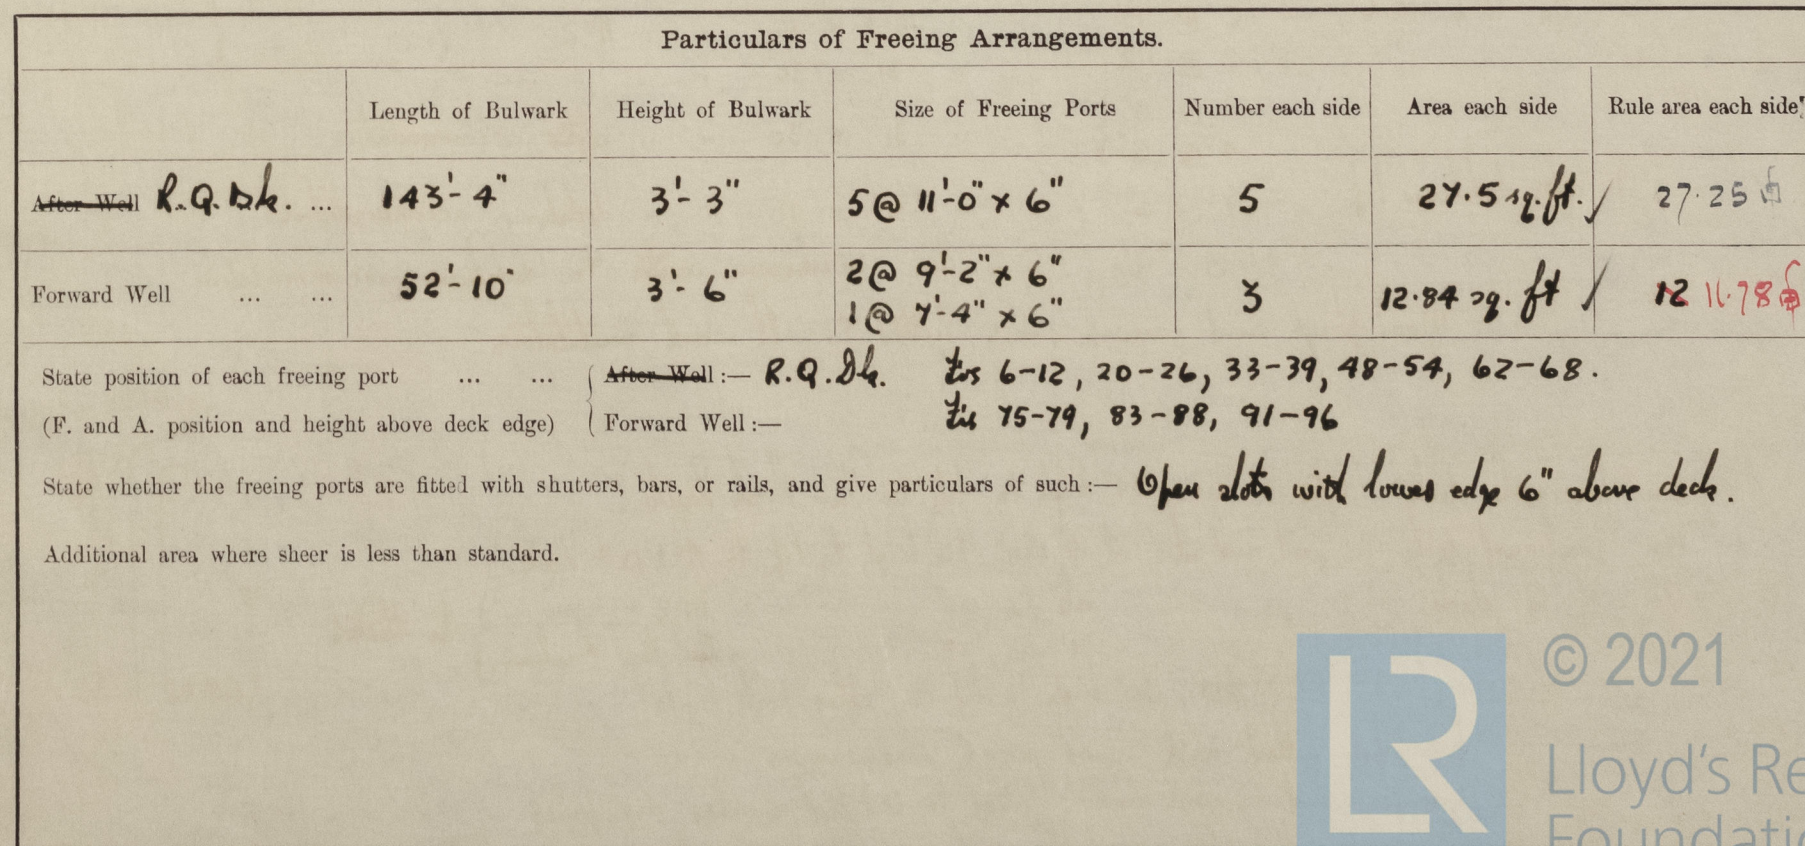 Particulars of Freeing Arrangements.
Length of Bulwark Height of Bulwark Size of Freeing Ports Number each side Area each side Rule area each side
After Well R.Q.Dk. ... 143'-4" 3'-3" 5 @ 11'-0" x 6" 5 27.5 sq. ft. ✓ 27.25
Forward Well ... ... 52'-10" 3'-6" 2 @ 9'-2" x 6" 3 12.84 sq. ft ✓ 12 11.78
1 @ 7'-4" x 6"
State position of each freeing port ... ... After Well :— R.Q.Dk. Frs 6-12, 20-26, 33-39, 48-54, 62-68.
(F. and A. position and height above deck edge) Forward Well :— Frs 75-79, 83-88, 91-96
State whether the freeing ports are fitted with shutters, bars, or rails, and give particulars of such :— Open slots with lower edge 6" above deck.
Additional area where sheer is less than standard.
© 2021
LR
Lloyd's Re
Foundati